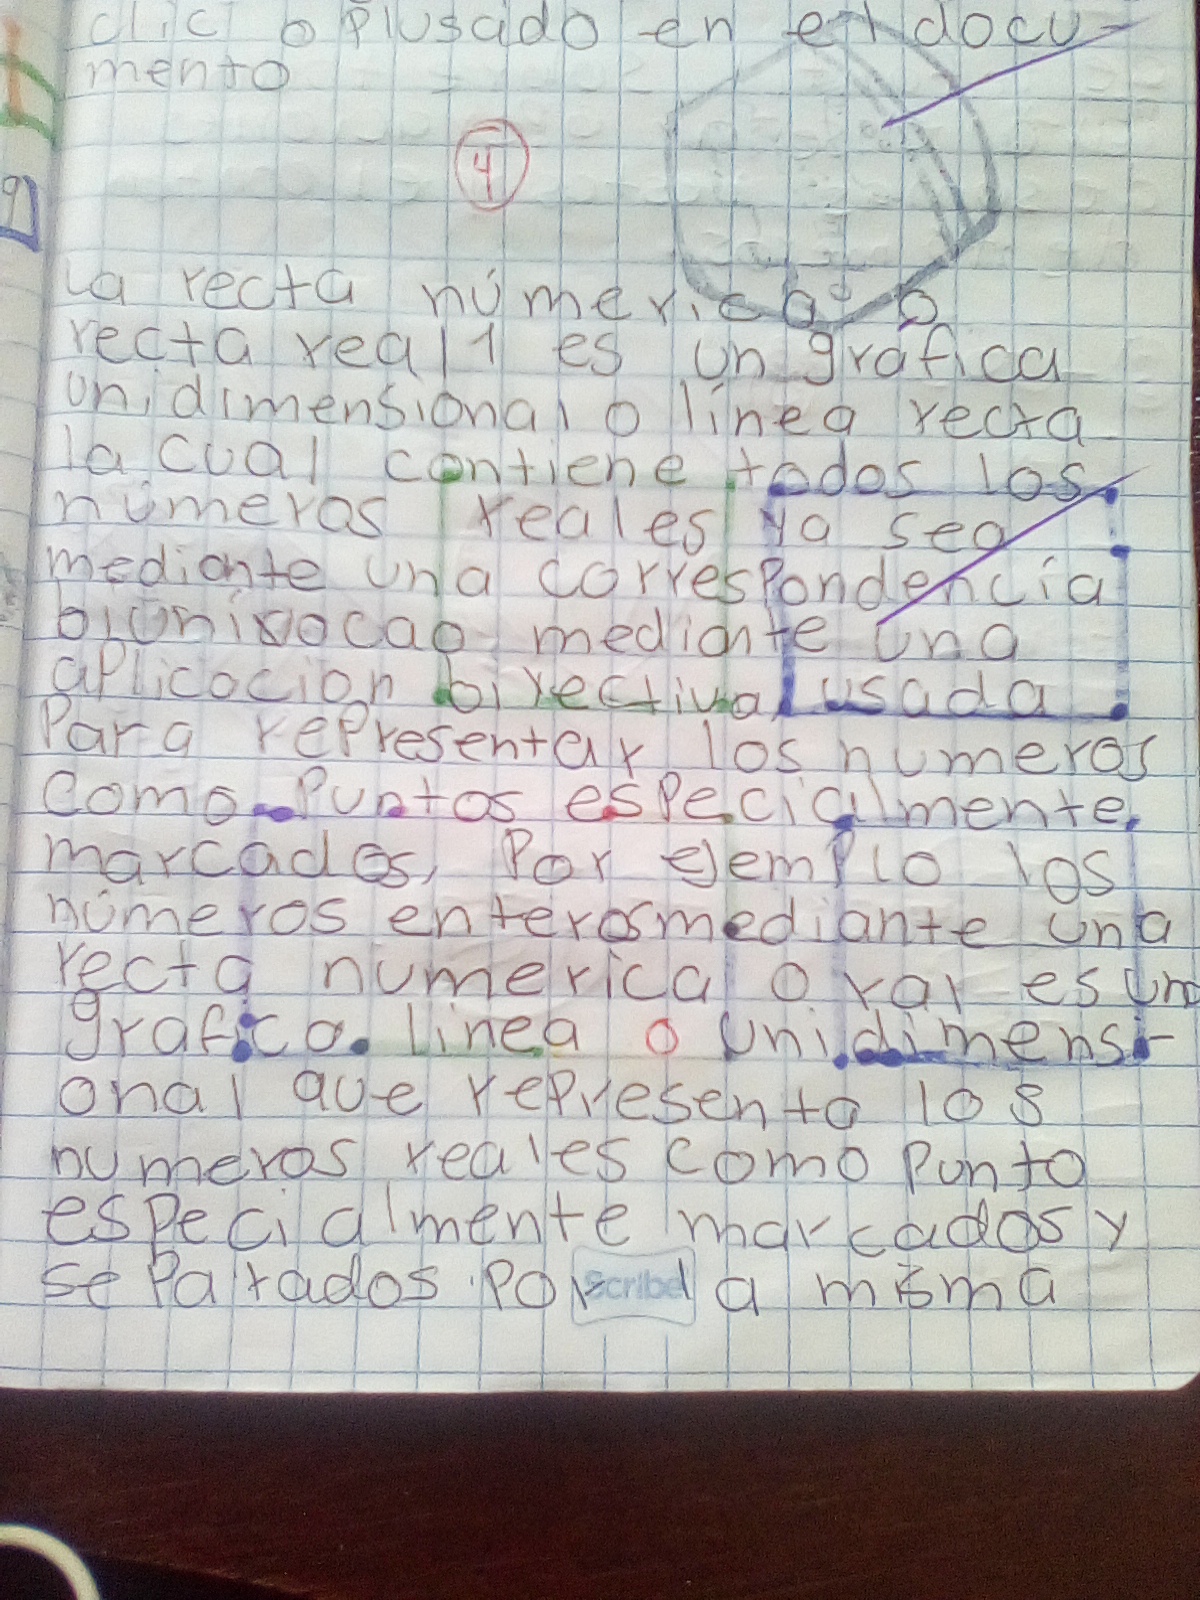 clic o plusado en el docu-
mento
4
9
la recta númerica o
recta real 1 es un gráfica
unidimensional o línea recta
la cual contiene todos los
números reales ya sea
mediante una correspondencia
mediante una
aplicacion birectiva usada
Para representar los numeros
como Puntos especialmente
marcados, Por ejemplo los
números enteros mediante una
recta numerica o ral es un
grafica linea o unidimensi-
onal que representa los
numeros reales como Punto
especialmente marcados y
separados por la misma
Scribe